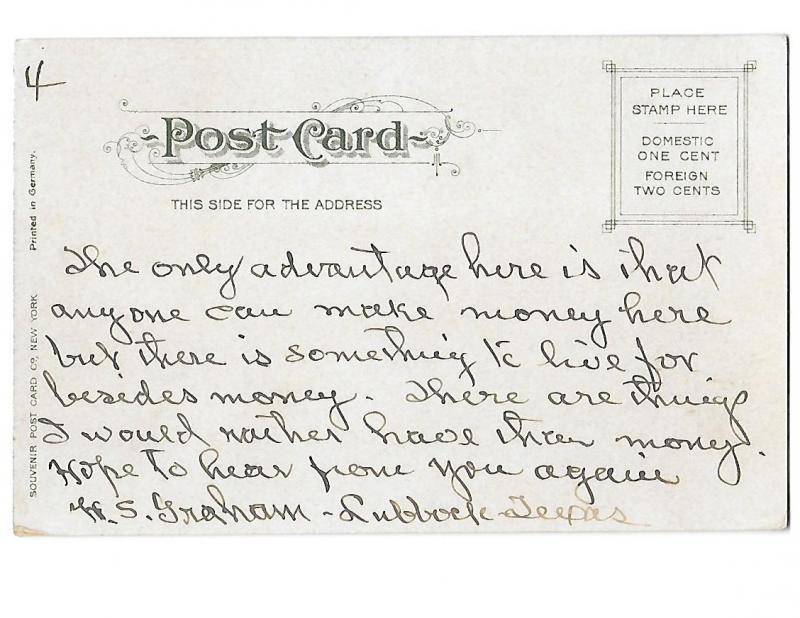 4
Post Card
THIS SIDE FOR THE ADDRESS
PLACE
STAMP HERE
DOMESTIC
ONE CENT
FOREIGN
TWO CENTS
Printed in Germany.
SOUVENIR POST CARD CO., NEW YORK
The only advantage here is that
anyone can make money here
but there is something to live for
besides money. There are things
I would rather have than money.
Hope to hear from you again
W. S. Graham - Lubbock Texas